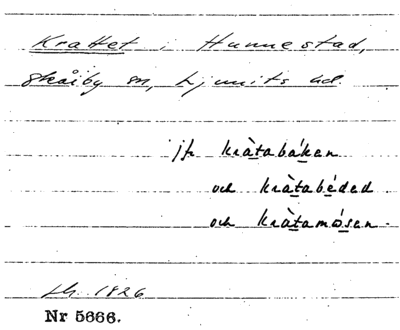 Krattet i Hunnestad,
Skårby sn, Ljunits hd.
jfr kràtabákan
och kràtabédad
och kràtamósan.
1826
Nr 5666.